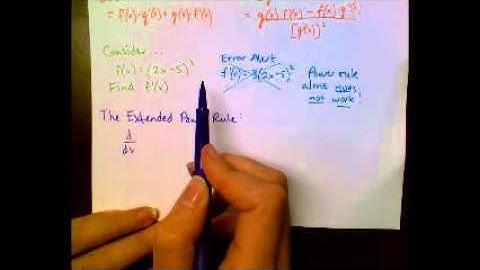 = f(x)·g'(x) + g(x)·f'(x)
= g(x)·f'(x) - f(x)·g'(x)
[g(x)]²
Consider ...
f(x) = (2x-5)³
Find f'(x)
Error Alert
f'(x) = 3(2x-5)²
Power rule
alone does
not work!
The Extended Power Rule:
d
dx